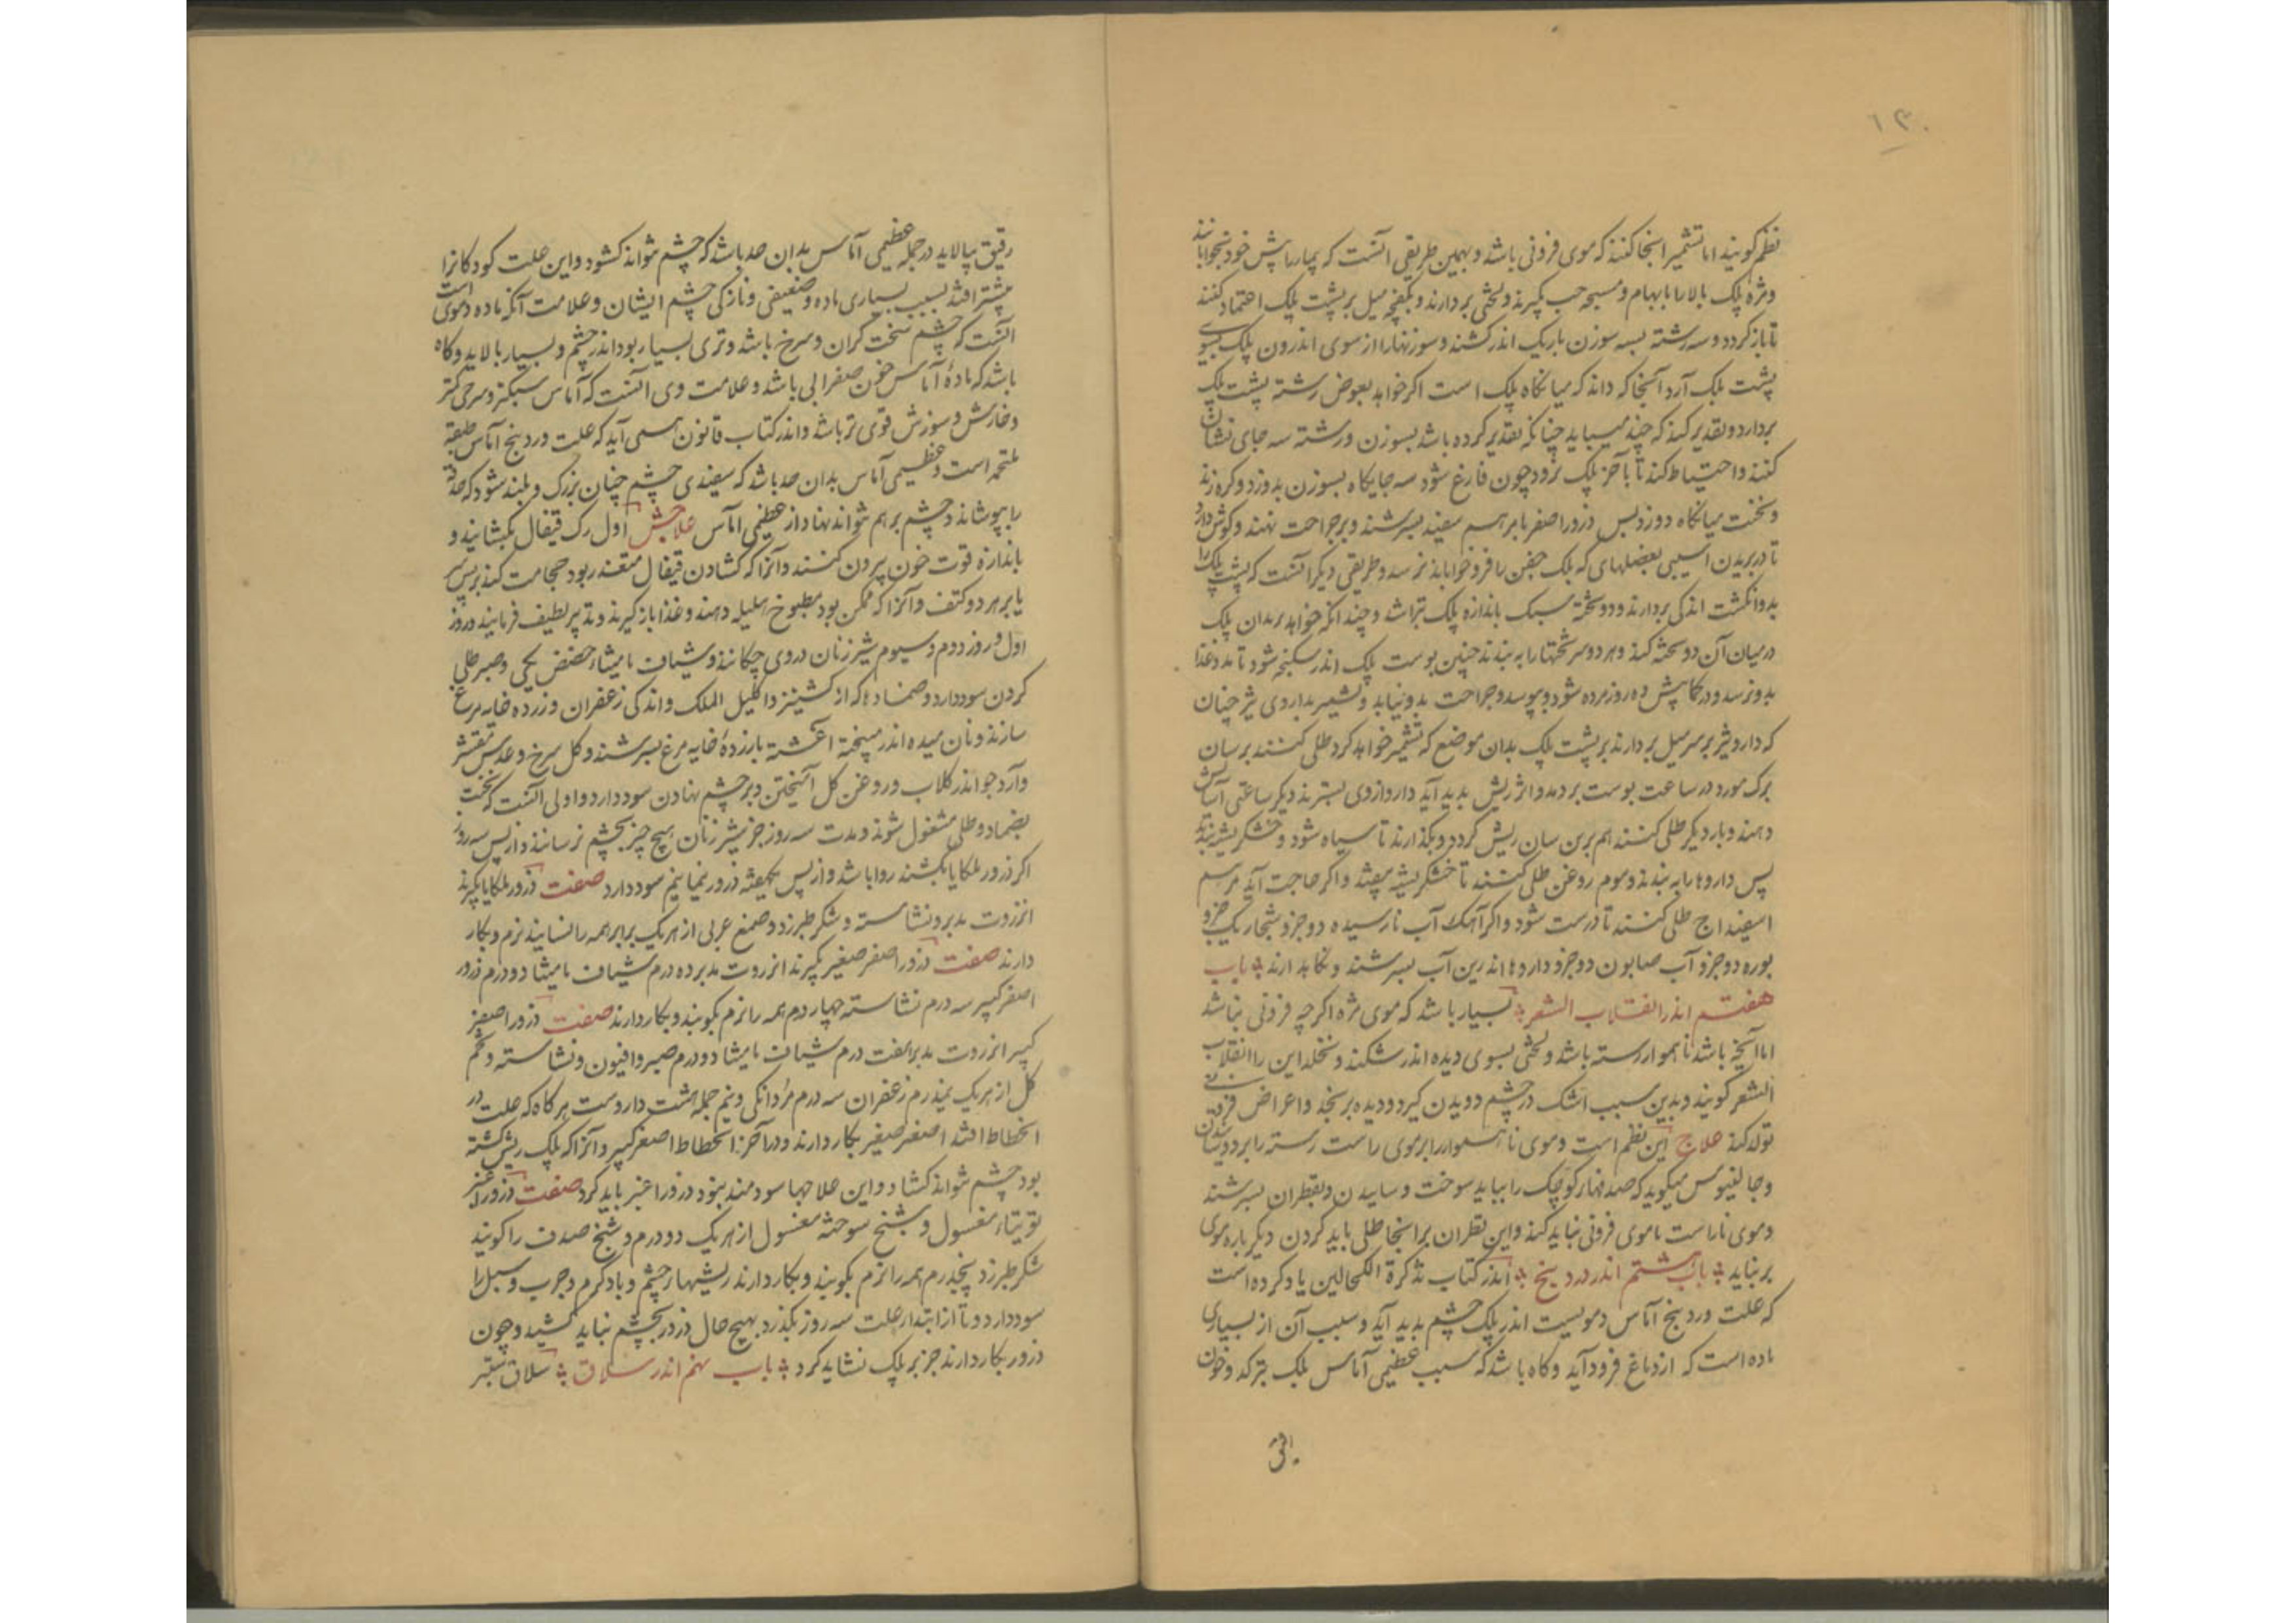 ۱۳۰
نظم گویند اما تشمیر اینجا کنند که موی فزونی باشد و بهمین طریقی آنست که بیمار را پیش خود بخوابانند
و مژه پلک بالا را بابهام و مسبحه چپ بگیرند و لختی بردارند و بکفچه میل بر پشت پلک اعتماد کنند
تا باز کردد و سه رشته بسه سوزن باریک اندر کشند و سوزنها را از سوی اندرون پلک بسوی
پشت پلک آرد آنجا که داند که میانکاه پلک است اکر خواهد بعوض رشته پشت پلک
بردارد و تقدیر کند که چند میباید چنانکه تقدیر کرده باشد بسوزن و رشته سه جای نشان
کنند و احتیاط کند تا بآخر پلک نرود چون فارغ شود سه جایکاه بسوزن بدوزد و کره زند
و نخست میانکاه دوزد پس ذرور اصفر بامرهم سفید بسرشند و بر جراحت نهند و کوش دارد
تا در بریدن آسیبی بعضلهای که پلک جفن را فرو خواباند نرسد و طریقی دیکر آنست که پشت پلک را
بدو انکشت اندکی بردارند و دو تخته سبک باندازه پلک بتراشد و چندانکه خواهد بدان پلک
در میان آن دو تخته کند و هر دو سر تختها را به بندند چنین پوست پلک اندر شکنجه شود تا مدد غذا
بدو نرسد و در کمابیش ده روز مرده شود و بپوسد و جراحت بدو نیاید و تشمیر بداروی تیز چنان
که داروی تیز بر سر میل بردارند بر پشت پلک بدان موضع که تشمیر خواهد کرد طلی کنند بر سان
برک مورد در ساعت پوست بردمد و اثر ریش بدید آید دارو از وی بسترند دیکر ساعتی آسایش
دهند و بار دیکر طلی کنند هم برین سان ریش کردد و بکذارند تا سیاه شود و خشکریشه بندد
پس داروها را به بندند و موم روغن طلی کنند تا خشکریشه بیفتد و اکر حاجت آید مرهم
اسفیداج طلی کنند تا درست شود و اکر آهک آب نارسیده دو جزو شخار یک جزو
بوره دو جزو آب صابون دو جزو داروها اندرین آب بسرشند و نکاه دارند باب
هفتم اندر انقلاب الشعر بسیار باشد که موی مژه اکر چه فزونی نباشد
اما آنچه باشد ناهموار رسته باشد و لختی بسوی دیده اندر شکند و بخلد این را انقلاب
الشعر کویند و بدین سبب اشک در چشم دویدن کیرد و دیده برنجد و اعراض فزونی
تولد کند علاج این نظم است و موی ناهموار را بر موی راست رسته را بر دوسانیدن
و جالینوس میکوید که صدفهای کوچک را بباید سوخت و ساییدن و بقطران بسرشند
و موی ناراست یا موی فزونی نباید کند و این قطران بر آنجا طلی باید کردن دیکر باره موی
بر نیاید باب هشتم اندر وردینج اندر کتاب تذکرة الکحالین یاد کرده است
که علت وردینج آماس دمویست اندر پلک چشم بدید آید و سبب آن از بسیاری
ماده است که از دماغ فرود آید و کاه باشد که سبب عظیمی آماس پلک بترکد و خون
رقیق بپالاید در جمله عظیمی آماس بدان حد باشد که چشم نتواند کشود و این علت کودکان را
بیشتر افتد بسبب بسیاری ماده و ضعیفی و نازکی چشم ایشان و علامت آنکه ماده دموی است
آنست که چشم سخت کران و سرخ باشد و تری بسیار بود اندر چشم و بسیار بالاید و کاه
باشد که ماده آماس خون صفرایی باشد و علامت وی آنست که آماس سبکتر و سرخی کمتر
و خارش و سوزش قوی تر باشد و اندر کتاب قانون همی آید که علت وردینج آماس طبقه
ملتحمه است و عظیمی آماس بدان حد باشد که سفیدی چشم چنان بزرک و بلند شود که حدقه
را بپوشاند و چشم بر هم نتواند نهاد از عظیمی آماس علاجش اول رک قیفال بکشانید و
باندازه قوت خون بیرون کنند و آنرا که کشادن قیفال متعذر بود حجامت کند بر پس سر
یا بر هر دو کتف و آنرا که ممکن بود مطبوخ هلیله دهند و غذا باز کیرند و تدبیر لطیف فرمایند و روز
اول و روز دوم و سیوم شیر زنان در وی چکانند و شیاف مامیثا و حضض مکی و صبر طلی
کردن سود دارد و ضمادها که از کشنیز و اکلیل الملک و اندکی زعفران و زرده خایه مرغ
سازند و نان میده اندر میپخته آغشته بازرده خایه مرغ بسرشند و کل سرخ و عدس مقشر
و آرد جو اندر کلاب و روغن کل آمیختن و بر چشم نهادن سود دارد و اولی آنست که نخست
بضماد و طلی مشغول شوند و مدت سه روز جز شیر زنان هیچ چیز بچشم نرسانند و از پس سه روز
اکر ذرور ملکایا بکشند روا باشد و از پس یکهفته ذرور نیمانیم سود دارد صفت ذرور ملکایا بکیرند
انزروت مدبر و نشاسته و شکر طبرزد و صمغ عربی از هر یک برابر همه را نسایند نرم و بکار
دارند صفت ذرور اصفر صغیر بکیرند انزروت مدبر ده درم شیاف مامیثا دو درم ذرور
اصفر کبیر سه درم نشاسته چهار درم همه را نرم بکوبند و بکار دارند صفت ذرور اصفر
کبیر انزروت مدبر هفت درم شیاف مامیثا دو درم صبر و افیون و نشاسته و تخم
کل از هر یک نیمدرم زعفران سه درم مر دانکی و نیم جمله هشت داروست هر کاه که علت در
انحطاط افتد اصفر صغیر بکار دارند و در آخر انحطاط اصفر کبیر و آنرا که پلک ریش کشته
بود چشم نتواند کشاد و این علاجها سودمند نبود ذرور اغبر باید کرد صفت ذرور اغبر
توتیاء مغسول و شنج سوخته مغسول از هر یک دو درم و شنج صدف را کویند
شکر طبرزد پنجدرم همه را نرم بکوبند و بکار دارند ریشهاء چشم و باد کرم و جرب و سبل را
سود دارد و تا از ابتداء علت سه روز بکذرد بهیچ حال ذرور بچشم نباید کشید و چون
ذرور بکار دارند جز بر پلک نشاید کرد باب نهم اندر سلاق سلاق ستبر